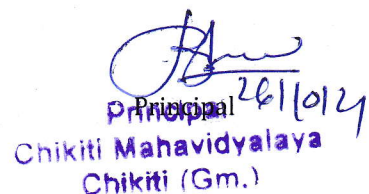 26/10/21
Principal
Principal
Chikiti Mahavidyalaya
Chikiti (Gm.)